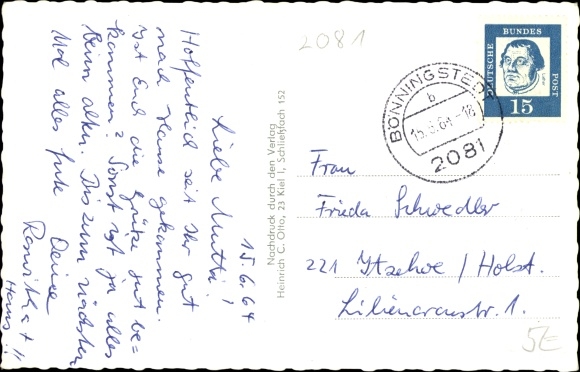 2081
15.6.64
Liebe Mutti!
Hoffentlich seit Ihr gut
nach Hause gekommen.
Ist Euch die Grütze gut be=
kommen? Sonst ist ja alles
beim alten. Bis zum nächsten
Mal alles gute Deine
Roswitha +
Hans!!
Nachdruck durch den Verlag
Heinrich C. Otto, 23 Kiel 1, Schließfach 152
DEUTSCHE BUNDES POST
15
BÖNNINGSTEDT
b
15.6.64-18
2081
Frau
Frieda Schwedler
221 Itzehoe / Holst.
Liliencronstr. 1.
5E